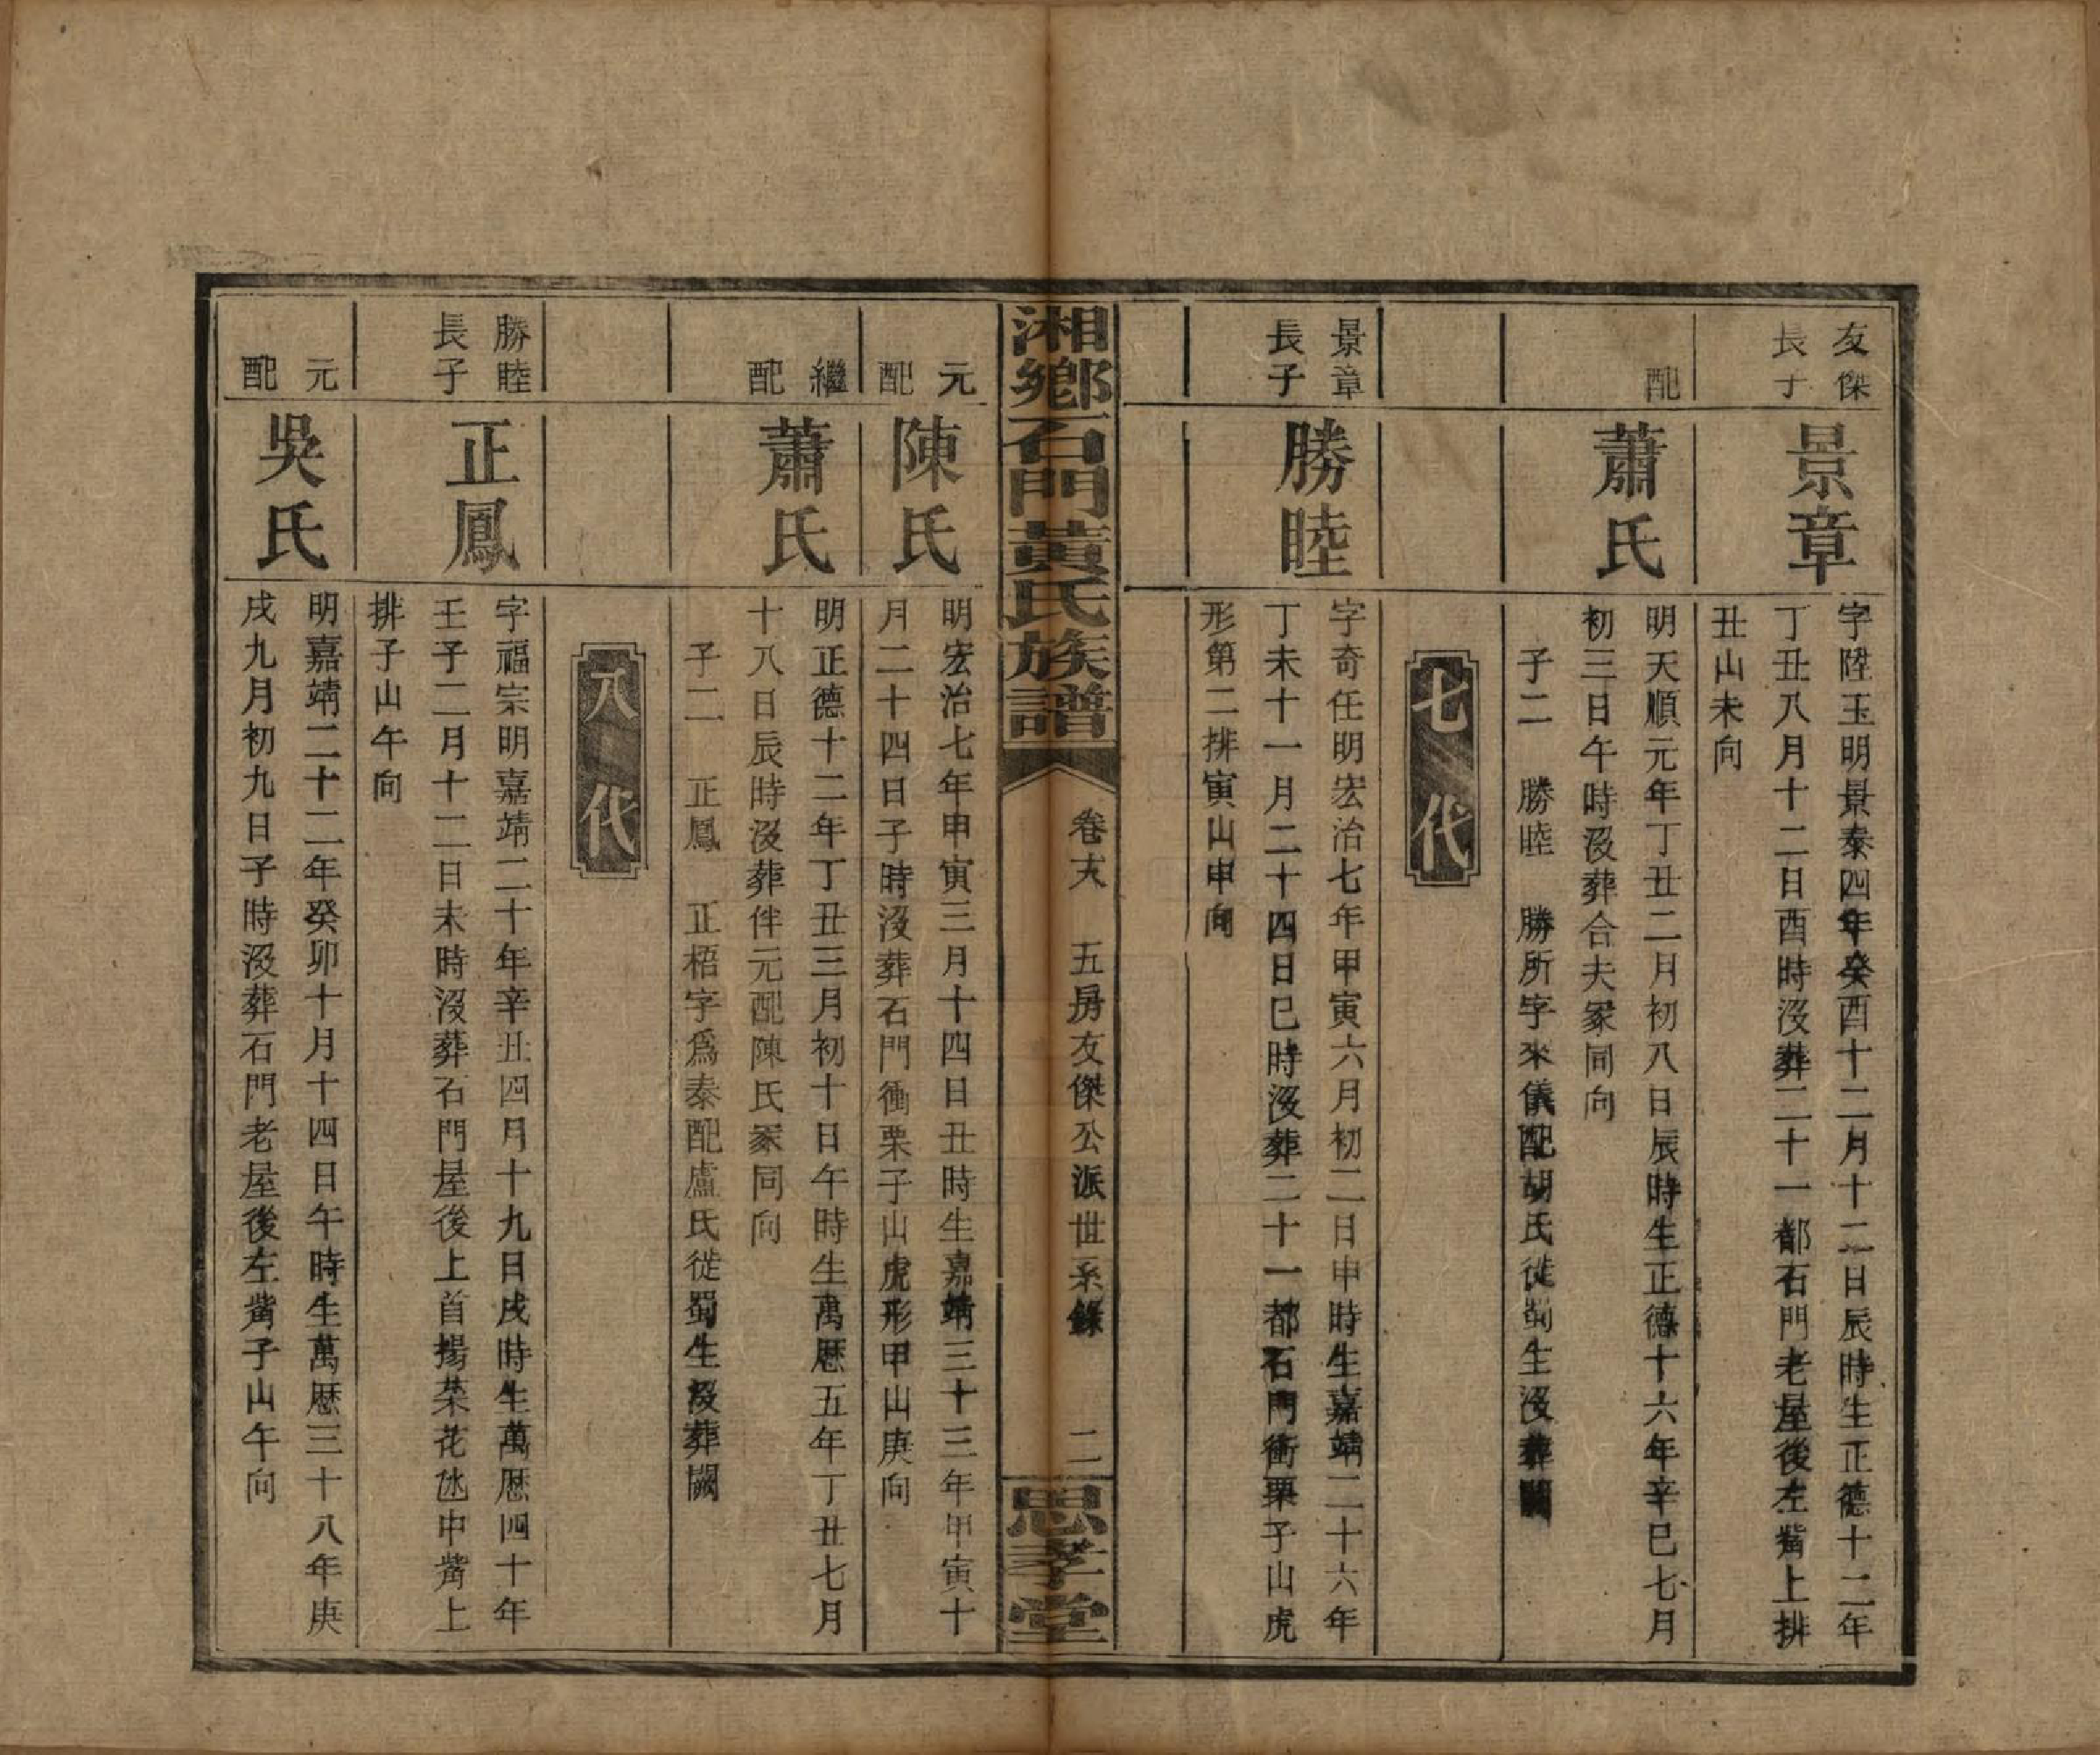 友傑
長子
景章
字陞玉明景泰四年癸酉十二月十二日辰時生正德十二年
丁丑八月十二日酉時沒葬二十一都石門老屋後左觜上排
丑山未向
配
蕭氏
明天順元年丁丑二月初八日辰時生正德十六年辛巳七月
初三日午時沒葬合夫冢同向
子二　勝睦　勝所字來儀配胡氏徙蜀生沒葬闕
七代
景章
長子
勝睦
字奇任明宏治七年甲寅六月初二日申時生嘉靖二十六年
丁未十一月二十四日巳時沒葬二十一都石門衝栗子山虎
形第二排寅山申向
湘鄉石門黃氏族譜
卷十六　五房友傑公派世系錄　二
思孝堂
元
配
陳氏
明宏治七年甲寅三月十四日丑時生嘉靖三十三年甲寅十
月二十四日子時沒葬石門衝栗子山虎形甲山庚向
繼
配
蕭氏
明正德十二年丁丑三月初十日午時生萬厯五年丁丑七月
十八日辰時沒葬伴元配陳氏冢同向
子二　正鳳　正梧字爲泰配盧氏徙蜀生沒葬闕
八代
勝睦
長子
正鳳
字福宗明嘉靖二十年辛丑四月十九日戌時生萬厯四十年
壬子二月十二日未時沒葬石門屋後上首楊茶花氹中觜上
排子山午向
元
配
吳氏
明嘉靖二十二年癸卯十月十四日午時生萬厯三十八年庚
戌九月初九日子時沒葬石門老屋後左觜子山午向